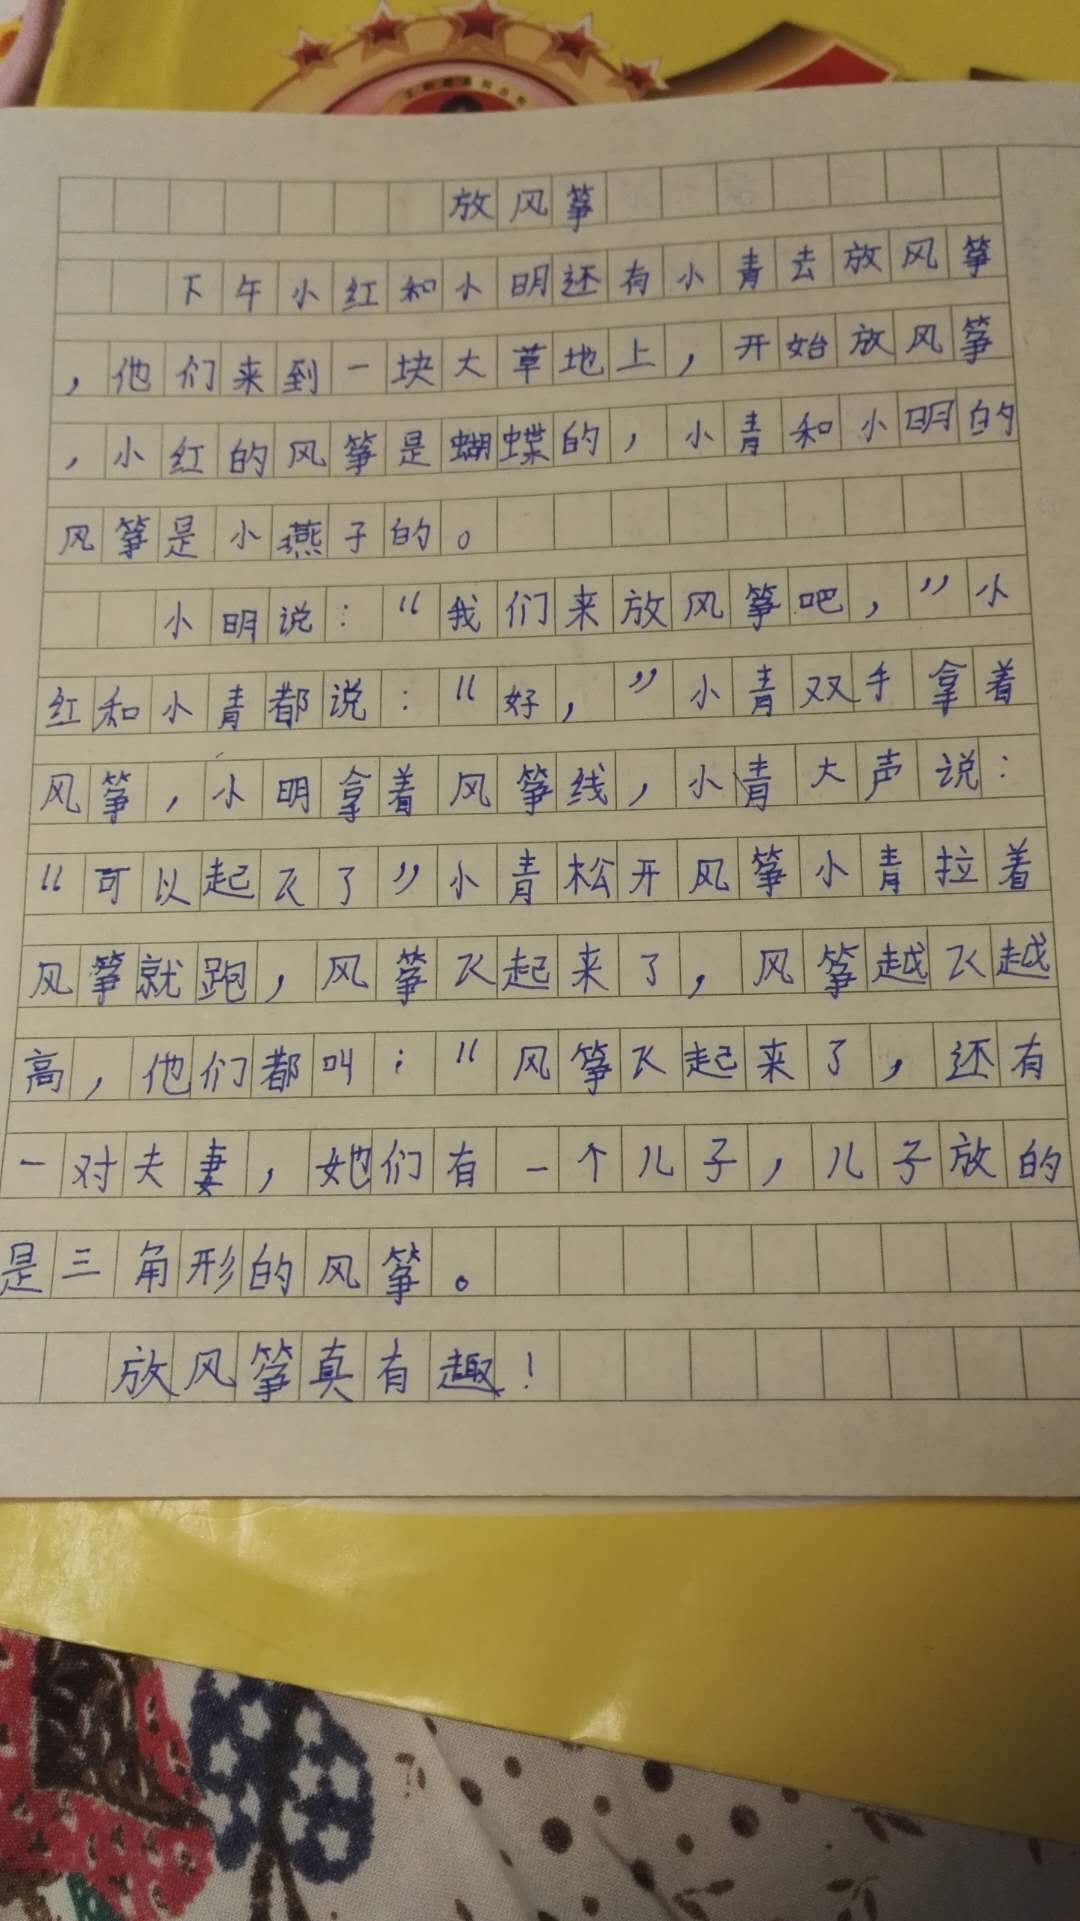 放风筝
下午小红和小明还有小青去放风筝
，他们来到一块大草地上，开始放风筝
，小红的风筝是蝴蝶的，小青和小明的
风筝是小燕子的。
小明说：“我们来放风筝吧，”小
红和小青都说：“好，”小青双手拿着
风筝，小明拿着风筝线，小青大声说：
“可以起飞了”小青松开风筝小青拉着
风筝就跑，风筝飞起来了，风筝越飞越
高，他们都叫：“风筝飞起来了，还有
一对夫妻，她们有一个儿子，儿子放的
是三角形的风筝。
放风筝真有趣！